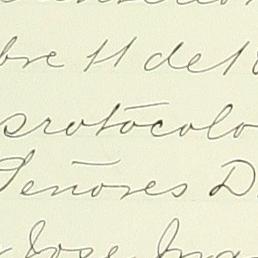 bre 11 del
protocolo
Señores D
José Ma